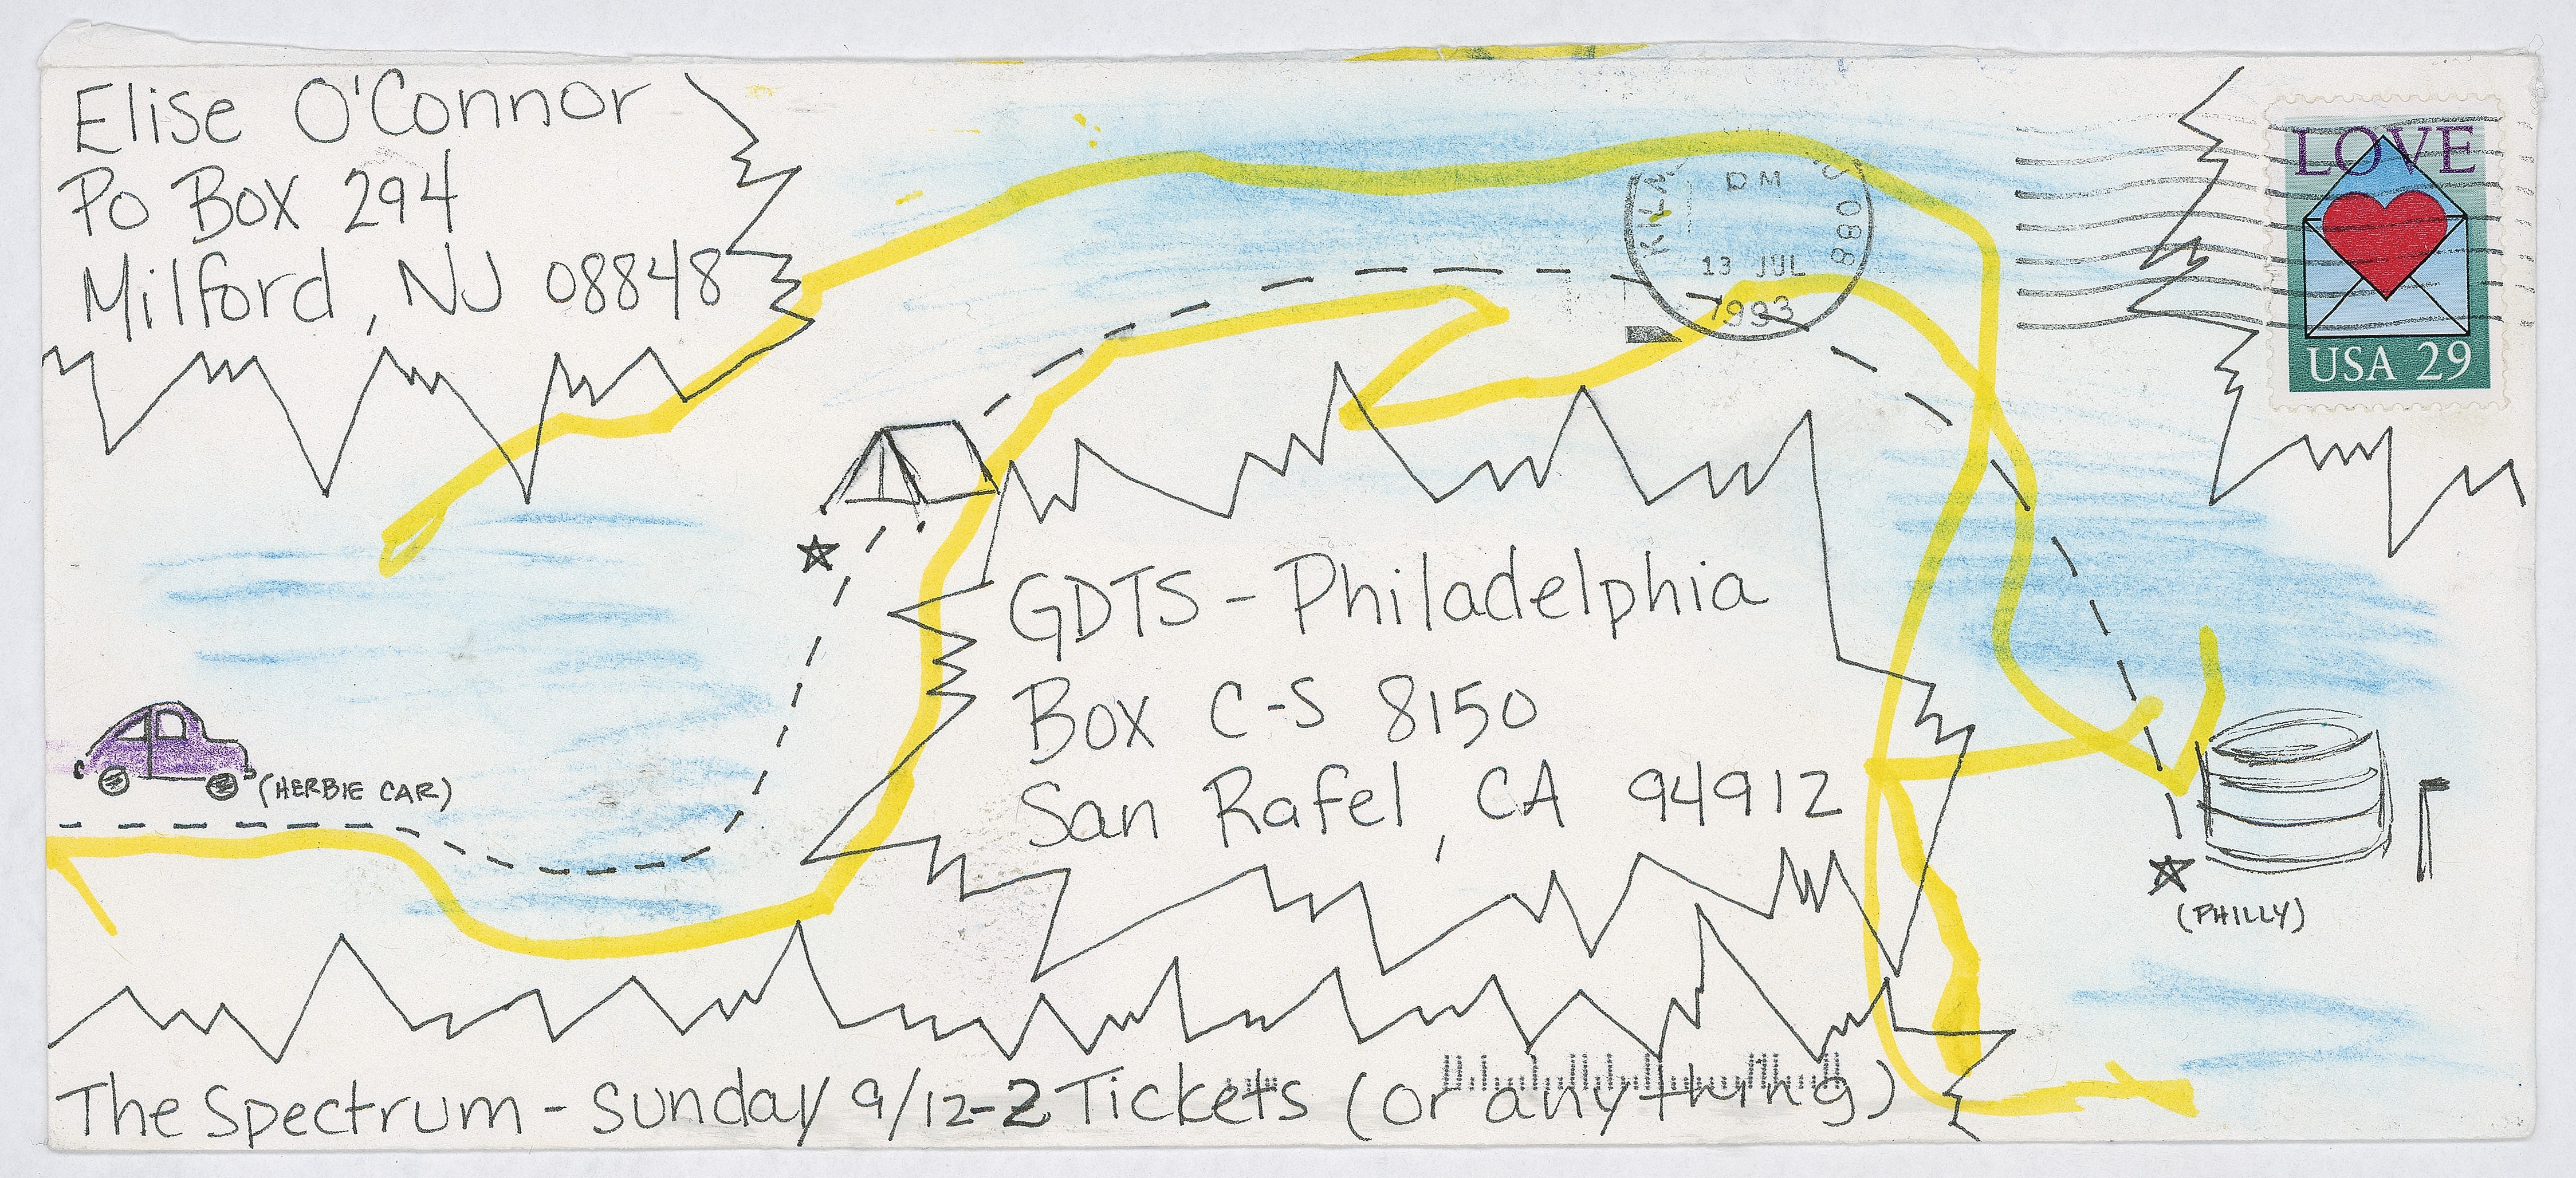 Elise O'Connor
Po Box 294
Milford, NJ 08848
PM
13 JUL
1993
088
LOVE
USA 29
GDTS - Philadelphia
Box C-S 8150
San Rafel, CA 94912
(HERBIE CAR)
(PHILLY)
The Spectrum - Sunday 9/12-2 Tickets (or anything)